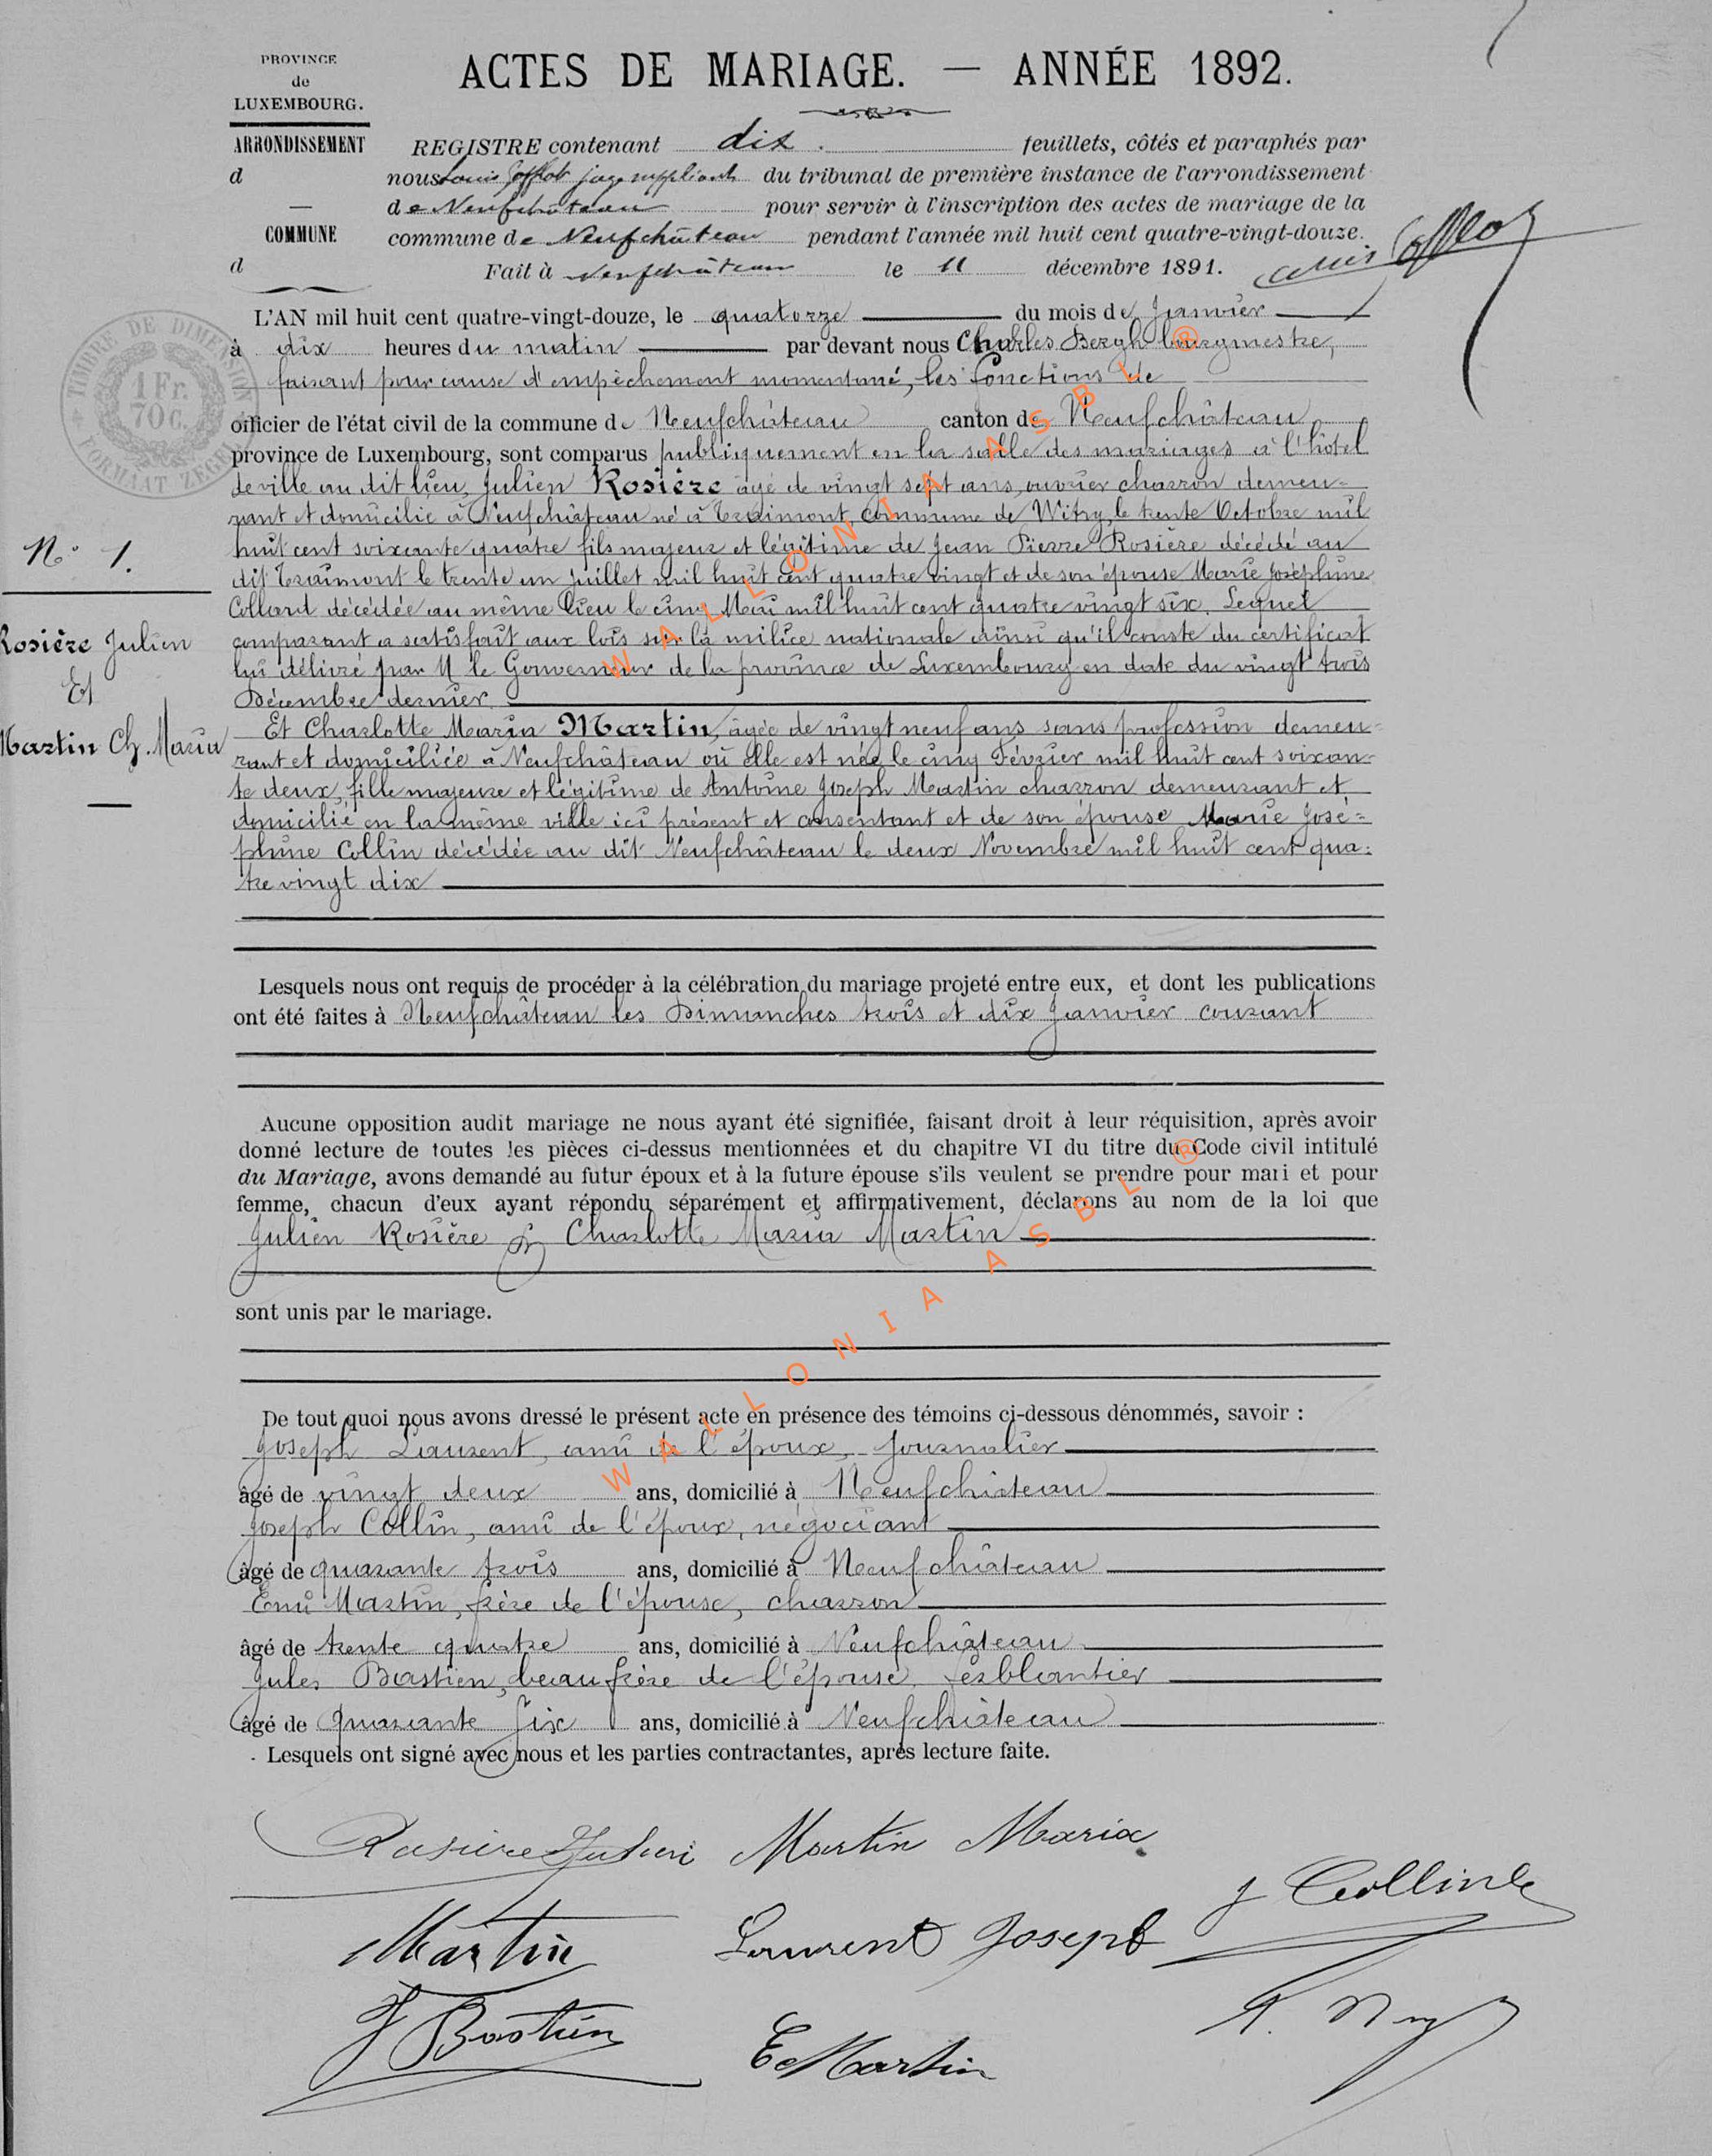 PROVINCE
de
LUXEMBOURG.
ARRONDISSEMENT
d
COMMUNE
d
ACTES DE MARIAGE. — ANNÉE 1892.
REGISTRE contenant dix feuillets, côtés et paraphés par
nous Louis juge suppléant du tribunal de première instance de l'arrondissement
de Neufchâteau pour servir à l'inscription des actes de mariage de la
commune de Neufchâteau pendant l'année mil huit cent quatre-vingt-douze.
Fait à Neufchâteau le 11 décembre 1891.
TIMBRE DE DIMENSION
1 Fr.
70 C.
FORMAAT ZEGEL
L'AN mil huit cent quatre-vingt-douze, le quatorze du mois de Janvier
à dix heures du matin par devant nous Charles Bergh bourgmestre,
faisant pour cause d'empêchement momentané, les fonctions de
officier de l'état civil de la commune de Neufchâteau canton de Neufchâteau
province de Luxembourg, sont comparus publiquement en la salle des mariages à l'hôtel
de ville au dit lieu, Julien Rosière âgé de vingt sept ans, ouvrier charron demeu-
rant et domicilié à Neufchâteau né à Traimont, commune de Witry, le trente Octobre mil
huit cent soixante quatre fils majeur et légitime de Jean Pierre Rosière décédé au
dit Traimont le trente un juillet mil huit cent quatre vingt et de son épouse Marie Joséphine
Collard décédée au même lieu le cinq Mai mil huit cent quatre vingt six. Lequel
comparant a satisfait aux lois sur la milice nationale ainsi qu'il conste du certificat
lui délivré par M le Gouverneur de la province de Luxembourg en date du vingt trois
Décembre dernier.
N° 1.
Rosière Julien
Et
Martin Ch. Maria
Et Charlotte Maria Martin, âgée de vingt neuf ans sans profession demeu-
rant et domiciliée à Neufchâteau où elle est née le cinq Février mil huit cent soixan-
te deux, fille majeure et légitime de Antoine Joseph Martin charron demeurant et
domicilié en la même ville ici présent et consentant et de son épouse Marie José=
phine Collin décédée au dit Neufchâteau le deux Novembre mil huit cent qua=
tre vingt dix
Lesquels nous ont requis de procéder à la célébration du mariage projeté entre eux, et dont les publications
ont été faites à Neufchâteau les Dimanches trois et dix Janvier courant
Aucune opposition audit mariage ne nous ayant été signifiée, faisant droit à leur réquisition, après avoir
donné lecture de toutes les pièces ci-dessus mentionnées et du chapitre VI du titre du Code civil intitulé
du Mariage, avons demandé au futur époux et à la future épouse s'ils veulent se prendre pour mari et pour
femme, chacun d'eux ayant répondu séparément et affirmativement, déclarons au nom de la loi que
Julien Rosière & Charlotte Maria Martin
sont unis par le mariage.
De tout quoi nous avons dressé le présent acte en présence des témoins ci-dessous dénommés, savoir :
Joseph Laurent, ami de l'époux, journalier
âgé de vingt deux ans, domicilié à Neufchâteau
Joseph Collin, ami de l'époux, négociant
âgé de quarante trois ans, domicilié à Neufchâteau
Emi Martin, frère de l'épouse, charron
âgé de trente quatre ans, domicilié à Neufchâteau
Jules Bastien, beau frère de l'épouse, ferblantier
âgé de quarante six ans, domicilié à Neufchâteau
Lesquels ont signé avec nous et les parties contractantes, après lecture faite.
Rosière Julien Martin Maria
J Collin
Martin Laurent Joseph
J Bastien E Martin
WALLONIA ASBL ®
WALLONIA ASBL ®